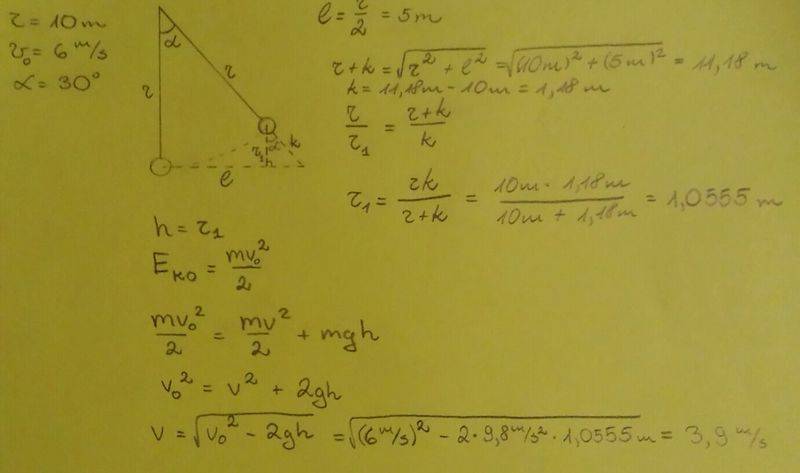 r = 10 m
v₀ = 6 m/s
α = 30°
α
r
r
r₁
α
k
h
l
l = r/2 = 5 m
r + k = √(r² + l²) = √((10m)² + (5m)²) = 11,18 m
k = 11,18m - 10m = 1,18 m
r/r₁ = (r+k)/k
r₁ = rk/(r+k) = (10m · 1,18m)/(10m + 1,18m) = 1,0555 m
h = r₁
E_KO = mv₀²/2
mv₀²/2 = mv²/2 + mgh
v₀² = v² + 2gh
v = √(v₀² - 2gh) = √((6 m/s)² - 2 · 9,8 m/s² · 1,0555 m) = 3,9 m/s